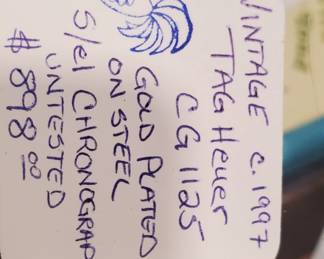 VINTAGE c. 1997
TAG Heuer
CG 1125
GOLD PLATED
ON STEEL
S/el CHRONOGRAP
UNTESTED
$898 00